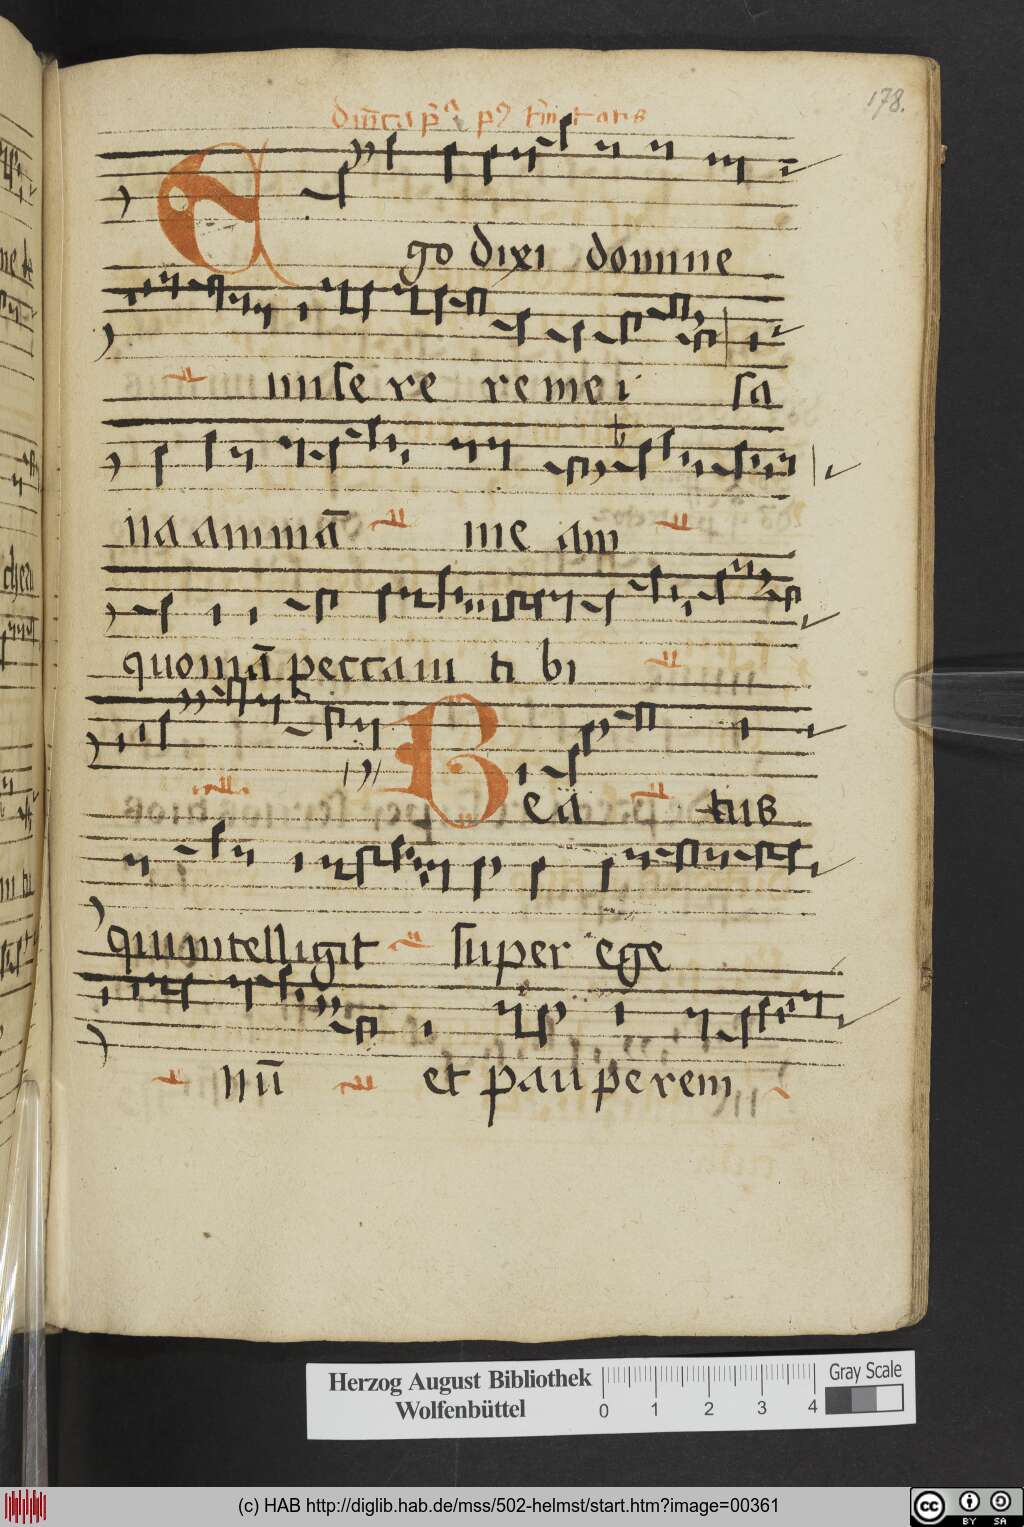 178.
Ego dixi domine
misere re mei sa
na animā me am
quoniā peccavi ti bi
Bea tus
qui intelligit super ege
nū et pauperem
Herzog August Bibliothek
Wolfenbüttel
0 1 2 3 4
Gray Scale
(c) HAB http://diglib.hab.de/mss/502-helmst/start.htm?image=00361
cc BY SA